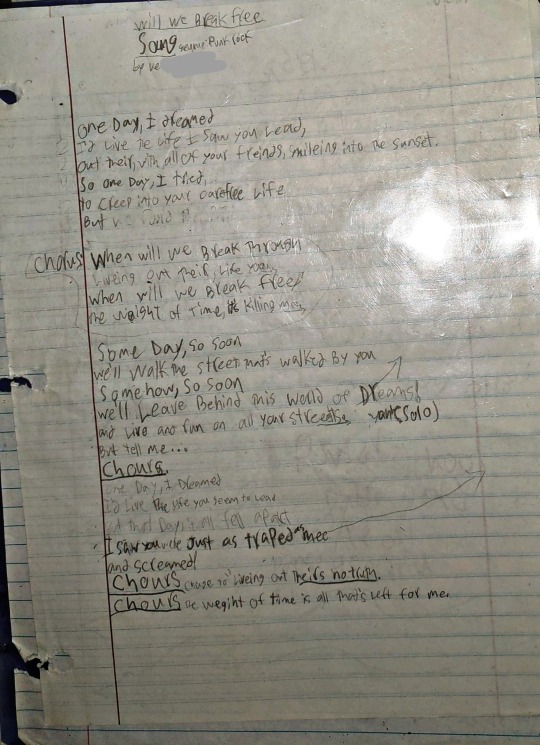 will we Break free
Song genre: Punk rock
by ve
one Day, I dreamed
I'd Live the Life I saw you Lead,
out their, with all of your freinds, smileing into the sunset.
So one Day, I tried,
to creep into your carefree Life
But we
Chorus When will we Break through
Liveing out Their, Like you,
when will we Break free,
the weight of Time, its killing me,
Some Day, so soon
we'll walk the street that's walked By you
Somehow, so soon
we'll Leave Behind this world of Dreams!
and Live and run on all your streets (solo)
But tell me...
Chours.
one Day, I Dreamed
I'd Live the life you seem to Lead
Day, it all fell apart
I saw you were Just as traped as mee
and screamed!
Chours to "Liveing out Theirs no truth.
Chours the wegiht of time is all that's Left for me.